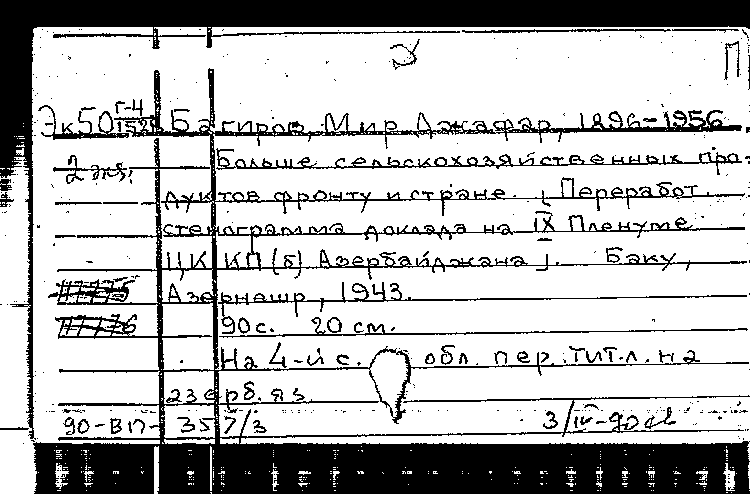 П
Эк50 Г-4/152 Багиров, Мир Джафар, 1896-1956.
2 экз. Больше сельскохозяйственных про-
дуктов фронту и стране. [Переработ.
стенограмма доклада на IX Пленуме
ЦК КП(б) Азербайджана]. Баку,
Азернешр, 1943.
90с. 20 см.
На 4-й с. обл. пер. тит. л. на
азерб. яз.
90-ВП-357/3 3/IV-90